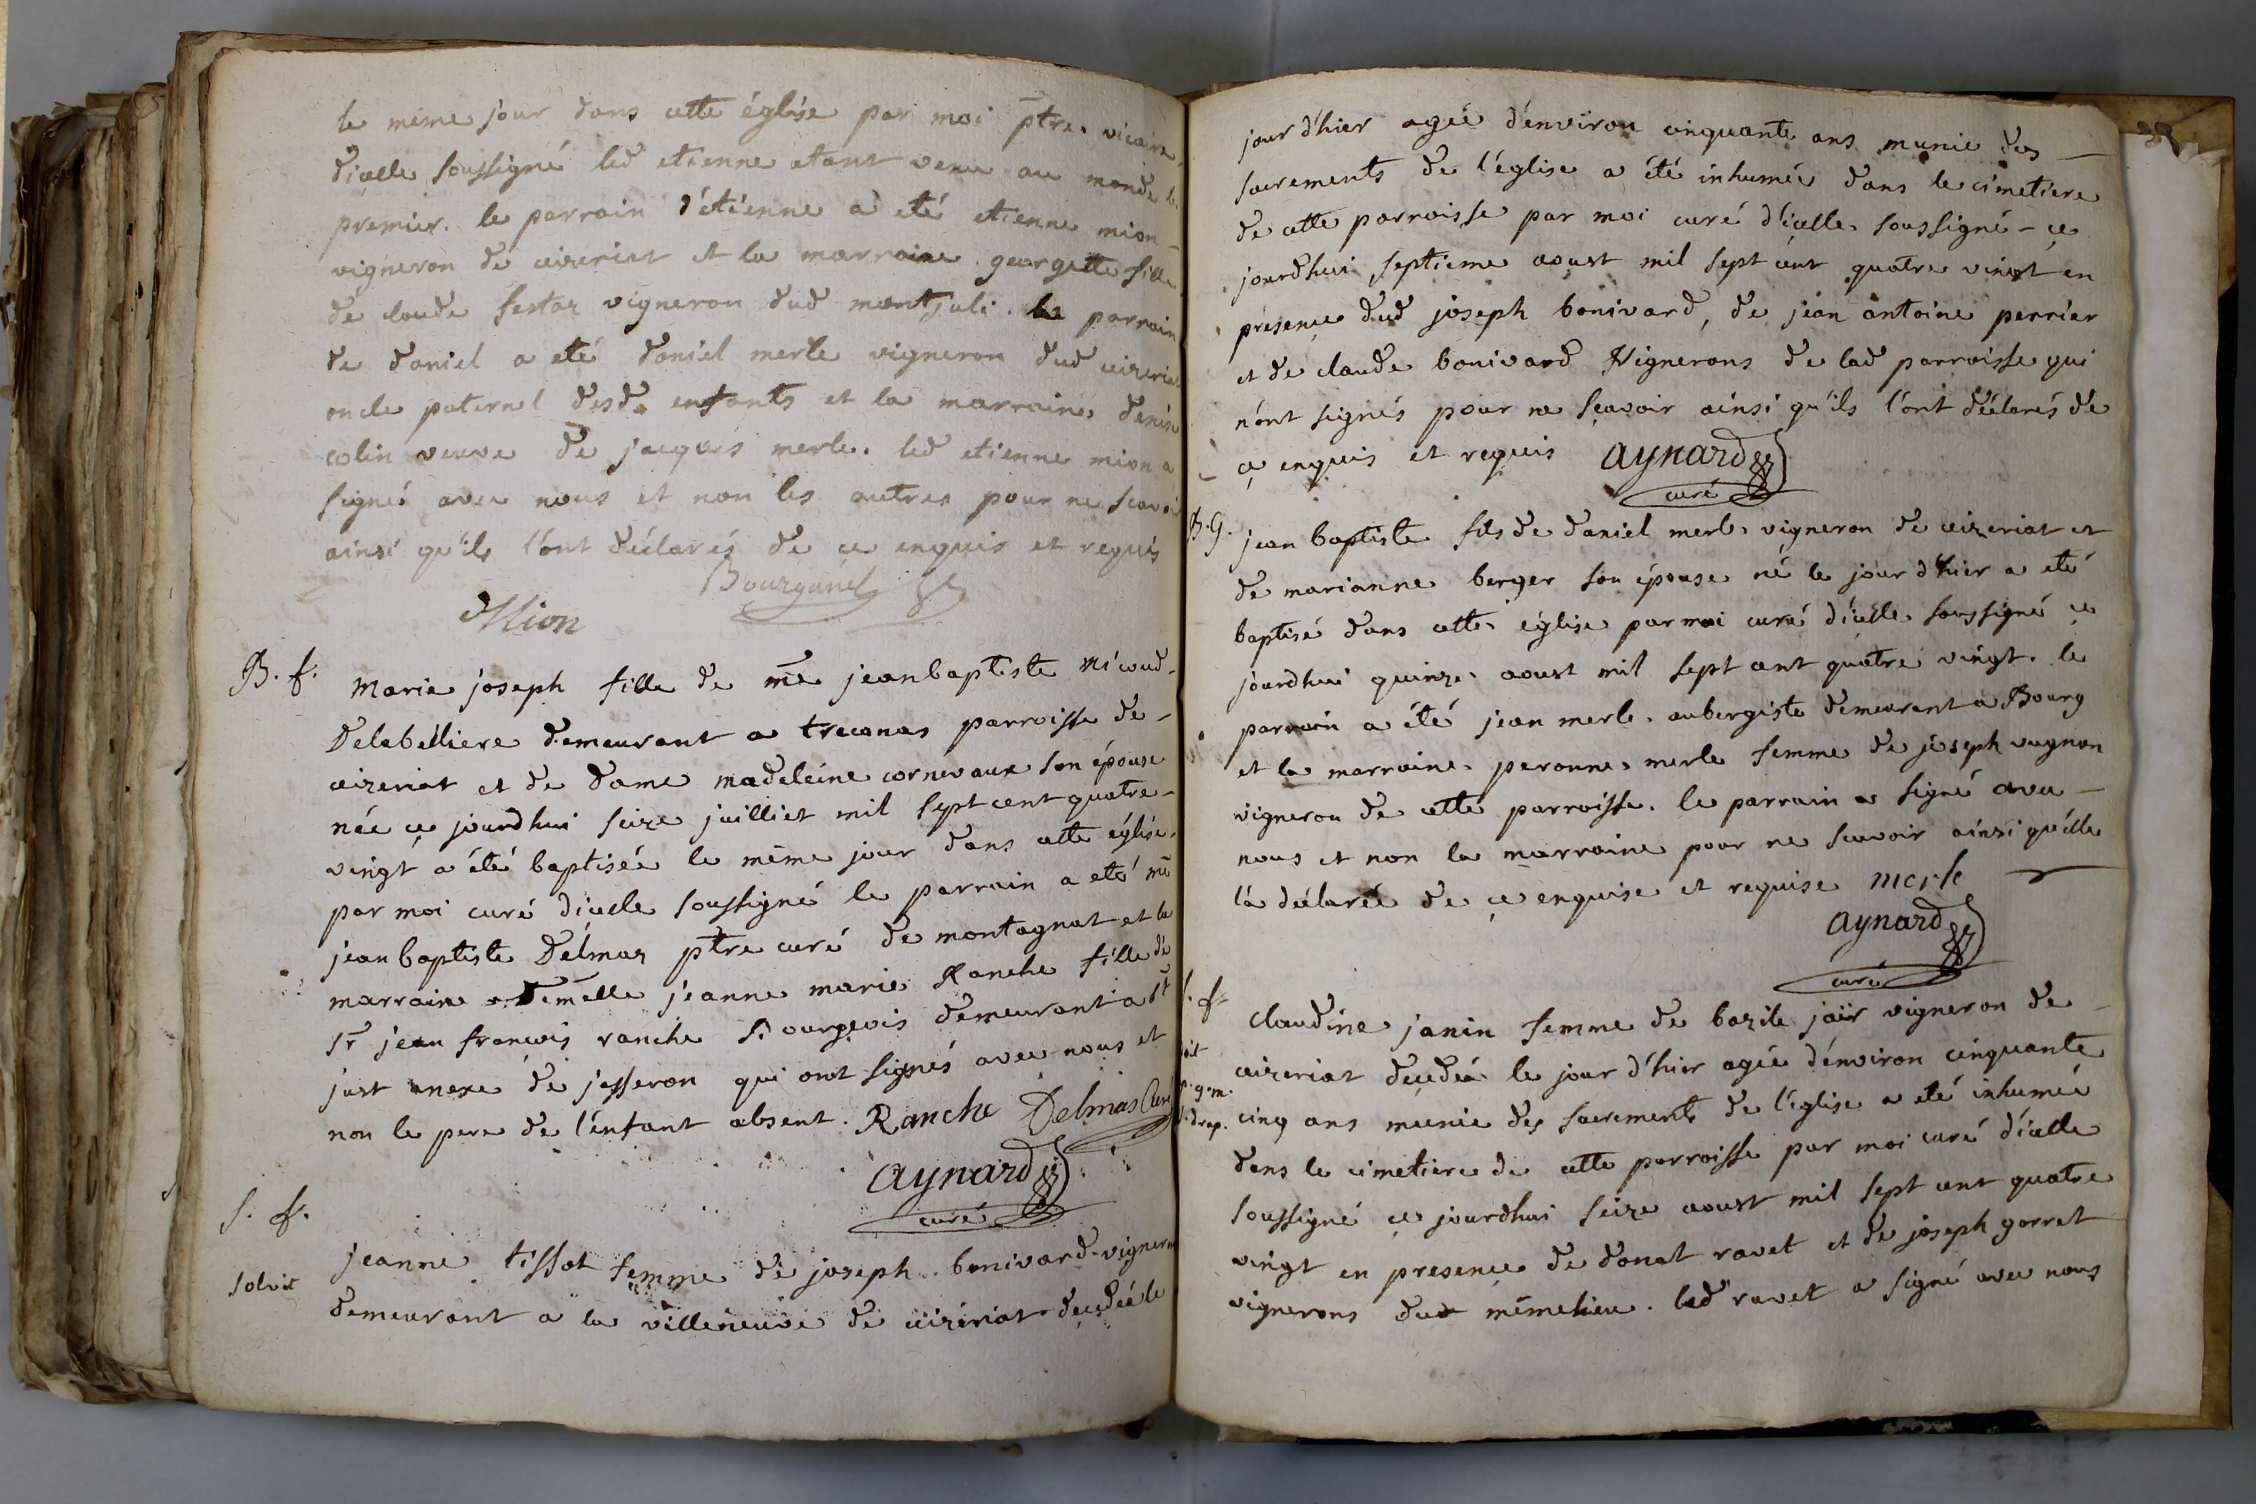 le même jour dans cette église par moi ptre vicaire
d'icelle soussigné led etienne etant venu au monde le
premier. le parrain d'étienne a eté etienne mion -
vigneron de ceizeriat et la marraine georgette fille
de claude festaz vigneron dud montjuli. le parrain
de daniel a eté daniel merle vigneron dud ceizeriat
oncle paternel desd. enfants et la marraine denise
colin veuve de jacques merle. led etienne mion a
signé avec nous et non les autres pour ne scavoir
ainsi qu'ils l'ont déclarés de ce enquis et requis
Bourganel
Mion
B. f.
Marie joseph fille de me jean baptiste nicoud -
Delabelliere demeurant a treconas parroisse de -
ceizeriat et de dame madeleine cornevaux son épouse
née ce jourdhui seize juilliet mil sept cent quatre -
vingt a été baptisée le même jour dans cette église
par moi curé d'icelle soussigné le parrain a eté me
jean baptiste Delmaz ptre curé de montagnat et la
marraine demelle jeanne marie Ranche fille de
sr jean francois ranche Bourgeois demeurant a st
just anexe de jasseron qui ont signés avec nous et
non le pere de l'enfant absent. Ranche Delmas Curé
aynard
curé
S. f.
solvit
jeanne tissot femme de joseph bonivard vigneron
demeurant a la villeneuve de ceizériat decedée le
jour d'hier agée d'environ cinquante ans munie des -
sacrements de l'église a été inhumée dans le cimetiere
de cette parroisse par moi curé d'icelle soussigné - ce
jourdhui septieme aoust mil sept cent quatre vingt en
présence dud joseph bonivard, de jean antoine perrier
et de claude bonivard Vignerons de lad parroisse qui
n'ont signés pour ne sçavoir ainsi qu'ils l'ont déclarés de
ce enquis et requis aynard
curé
B. G.
jean baptiste fils de daniel merle vigneron de ceizeriat et
de marianne berger son épouse né le jour d'hier a eté
baptisé dans cette église par moi curé d'icelle soussigné ce
jourdhui quinze aoust mil sept cent quatre vingt. le
parrain a été jean merle aubergiste demeurant a Bourg
et la marraine peronne merle femme de joseph vugnon
vigneron de cette parroisse. le parrain a signé avec -
nous et non la marraine pour ne scavoir ainsi qu'elle
l'a déclarée de ce enquise et requise merle
aynard
curé
S. f.
claudine janin femme de bazile jaïr vigneron de -
ceizeriat decedée le jour d'hier agée d'environ cinquante
g. m.
cinq ans munie des sacrements de l'église a eté inhumée
drap.
dans le cimetiere de cette parroisse par moi curé d'icelle
soussigné ce jourdhui seize aoust mil sept cent quatre
vingt en presence de donat ravet et de joseph gorret
vignerons dud même lieu. led ravet a signé avec nous